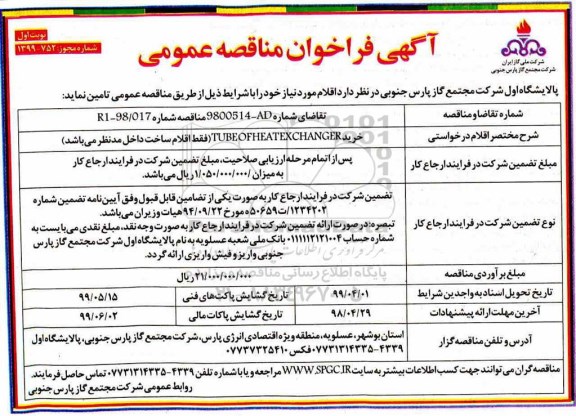 نوبت اول
شماره مجوز: ۷۵۲-۱۳۹۹
آگهی فراخوان مناقصه عمومی
شرکت ملی گاز ایران
شرکت مجتمع گاز پارس جنوبی
پالایشگاه اول شرکت مجتمع گاز پارس جنوبی در نظر دارد اقلام مورد نیاز خود را با شرایط ذیل از طریق مناقصه عمومی تامین نماید:
شماره تقاضا و مناقصه
تقاضای شماره 9800514-AD مناقصه شماره R1-98/017
شرح مختصر اقلام درخواستی
خرید TUBEOFHEATEXCHANGER (فقط اقلام ساخت داخل مدنظر می باشد)
مبلغ تضمین شرکت در فرایند ارجاع کار
پس از اتمام مرحله ارزیابی صلاحیت، مبلغ تضمین شرکت در فرایند ارجاع کار
به میزان ۱/۰۵۰/۰۰۰/۰۰۰ ریال می باشد.
نوع تضمین شرکت در فرایند ارجاع کار
تضمین شرکت در فرایند ارجاع کار به صورت یکی از تضامین قابل قبول وفق آیین نامه تضمین شماره
۱۲۳۴۲۰۲/ت۵۰۶۵۹ه مورخ ۹۴/۰۹/۲۲ هیات وزیران می باشد.
تبصره: در صورت ارائه تضمین شرکت در فرایند ارجاع کار به صورت وجه نقد، مبلغ نقدی می بایست به
شماره حساب ۰۱۱۱۱۱۲۱۲۱۰۰۴ بانک ملی شعبه عسلویه به نام پالایشگاه اول شرکت مجتمع گاز پارس
جنوبی واریز و فیش واریزی ارائه گردد.
مبلغ برآوردی مناقصه
۲۱/۰۰۰/۰۰۰/۰۰۰ ریال
تاریخ تحویل اسناد به واجدین شرایط
۹۹/۰۴/۰۱
تاریخ گشایش پاکت های فنی
۹۹/۰۵/۱۵
آخرین مهلت ارائه پیشنهادات
۹۸/۰۴/۲۹
تاریخ گشایش پاکات مالی
۹۹/۰۶/۰۲
آدرس و تلفن مناقصه گزار
استان بوشهر، عسلویه، منطقه ویژه اقتصادی انرژی پارس، شرکت مجتمع گاز پارس جنوبی، پالایشگاه اول
۴۳۳۹-۰۷۷۳۱۳۱۴۳۳۵ فکس ۰۷۷۳۷۳۲۵۴۱۰
مناقصه گران می توانند جهت کسب اطلاعات بیشتر به سایت WWW.SPGC.IR مراجعه و یا با شماره تلفن ۴۳۳۹-۰۷۷۳۱۳۱۴۳۳۵ تماس حاصل فرمایند.
روابط عمومی شرکت مجتمع گاز پارس جنوبی